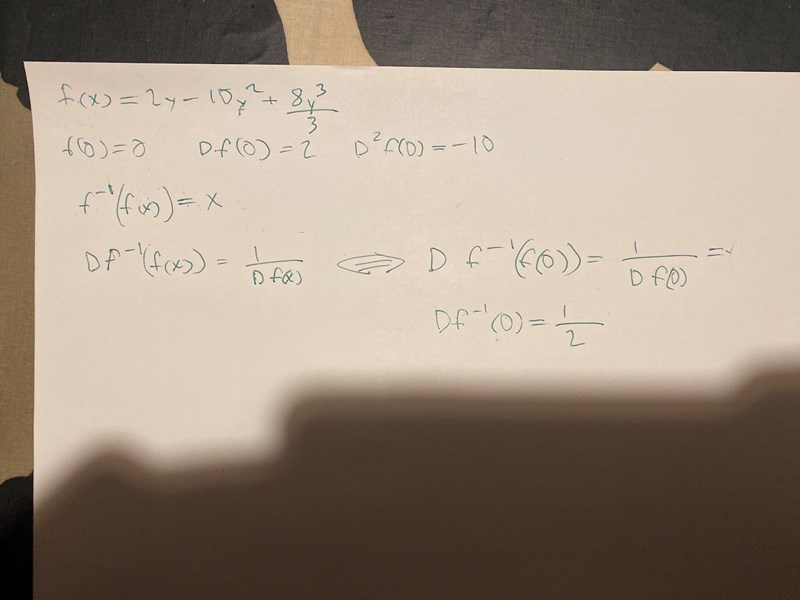 f(x) = 2y - 10y² + 8y³/3
f(0) = 0 Df(0) = 2 D²f(0) = -10
f⁻¹(f(x)) = x
Df⁻¹(f(x)) = 1/Df(x) ⟺ D f⁻¹(f(0)) = 1/Df(0) =
Df⁻¹(0) = 1/2